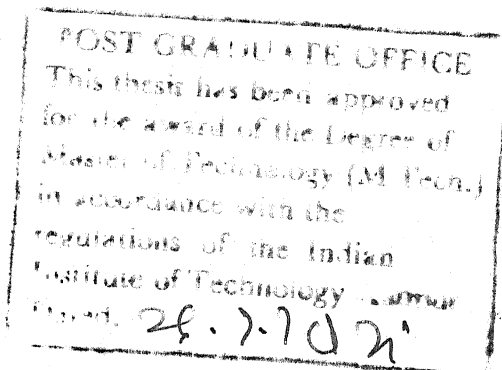 POST GRADUATE OFFICE
This thesis has been approved
for the award of the Degree of
Master of Technology (M Tech.)
in accordance with the
regulations of the Indian
Institute of Technology Kanpur
Dated.